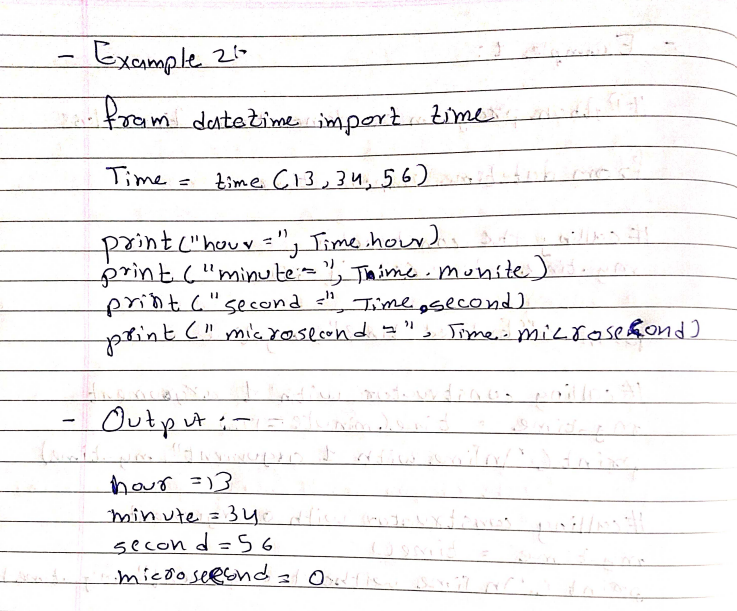 - Example 2:-
fram datetime import time
Time = time (13, 34, 56)
print ("hour =", Time.hour)
print ("minute = ", Time. munite)
print ("second =", Time.second)
print (" microsecond = ", Time. microsecond)
- Output :-
hour = 13
minute = 34
second = 56
microsecond = 0